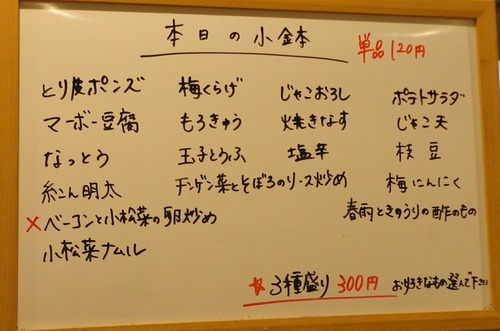 本日の小鉢
単品120円
とり皮ポンズ 梅くらげ じゃこおろし ポテトサラダ
マーボー豆腐 もろきゅう 焼きなす じゃこ天
なっとう 玉子とうふ 塩辛 枝豆
糸こん明太 チンゲン菜とそぼろのソース炒め 梅にんにく
×ベーコンと小松菜の卵炒め 春雨ときゅうりの酢のもの
小松菜ナムル
☆3種盛り 300円 お好きなもの選んで下さい